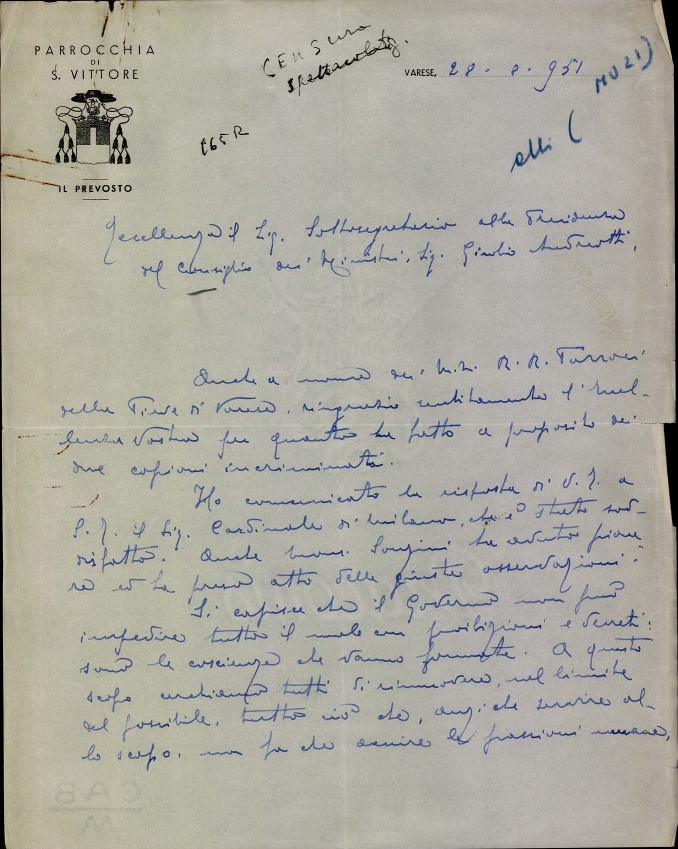 PARROCCHIA
DI
S. VITTORE
IL PREVOSTO
CENSURA
spettacolo
VARESE, 28 - 8 - 951
MUZI)
alli (
165R
Eccellenza il Sig. Sottosegretario alla Presidenza
del Consiglio dei Ministri, Sig. Giulio Andreotti,
Anche a nome dei M. R. R. Parroci
della Pieve di Varese, ringrazio sentitamente l'Eccel-
lenza Vostra per quanto ha fatto a proposito dei
due copioni incriminati.
Ho comunicato la risposta di V. E. a
S. E. il Sig. Cardinale di Milano, che è stato sod-
disfatto. Anche Mons. Sonzini ha avuto piace-
re ed ha preso atto delle giuste osservazioni.
Si capisce che il Governo non può
impedire tutto il male con proibizioni e decreti:
sono le coscienze che vanno formate. A questo
scopo cerchiamo tutti di rimuovere, nel limite
del possibile, tutto ciò che, anziché servire al-
lo scopo, non fa che le passioni umane,